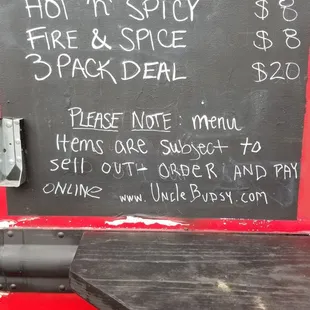 HOT 'n' SPICY $8
FIRE & SPICE $8
3 PACK DEAL $20
PLEASE NOTE: menu
Items are subject to
sell out! ORDER AND PAY
ONLINE www.UncleBudsy.com